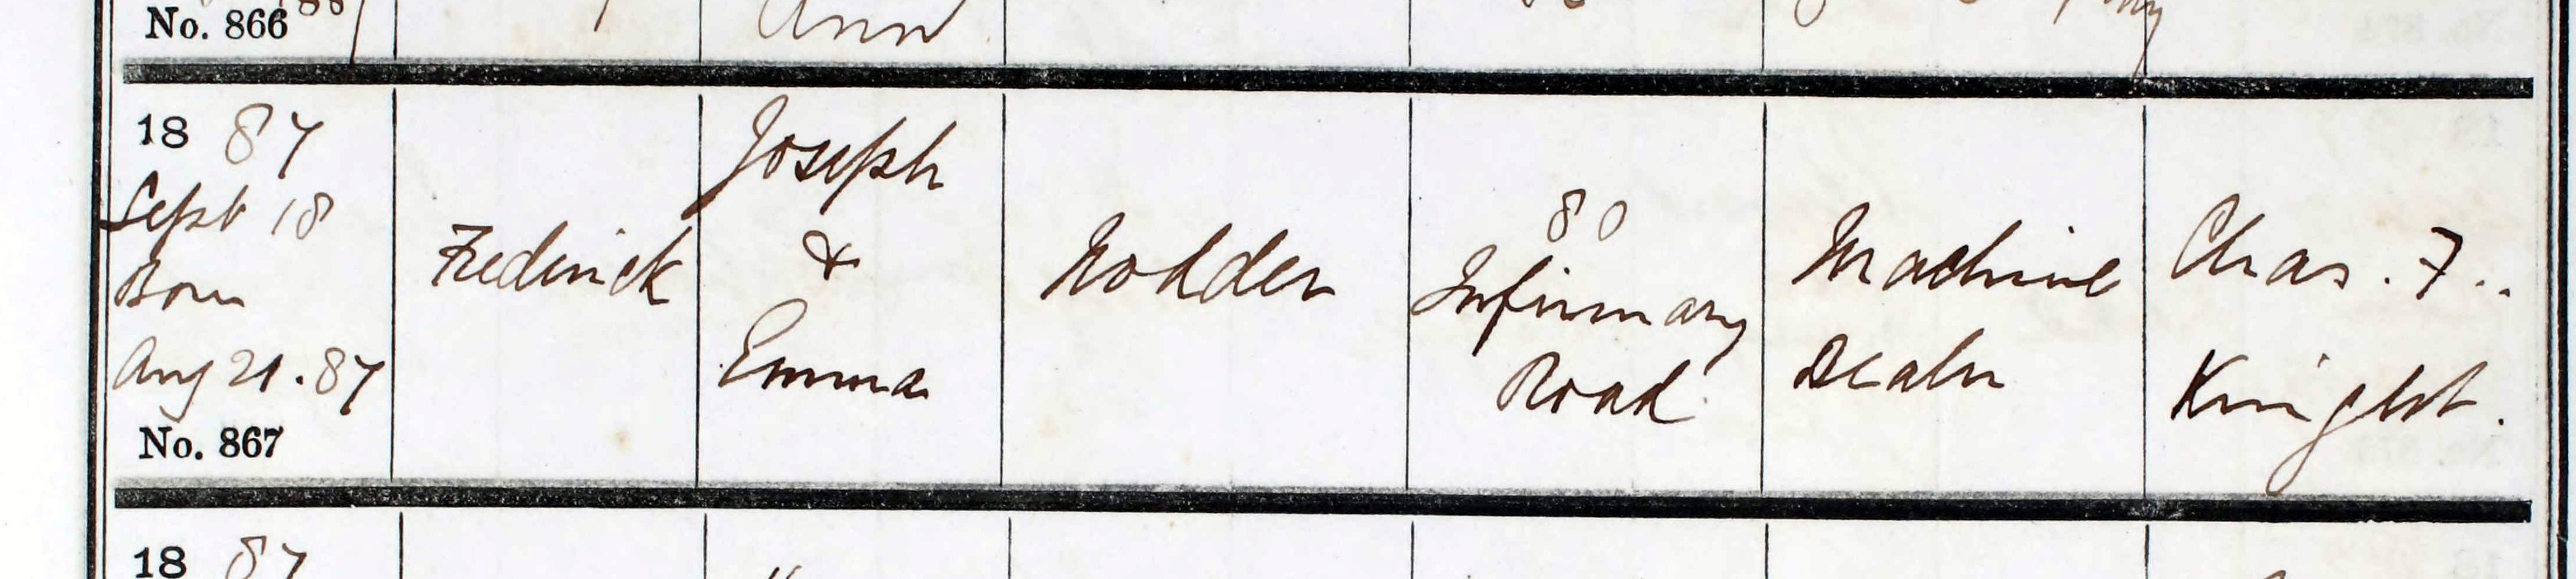 No. 866
Ann
18 87
Sept 18
Born
Aug 21. 87
No. 867
Frederick
Joseph
&
Emma
Nodder
80
Infirmary
Road
Machine
Dealer
Chas. F..
Knight.
18 87